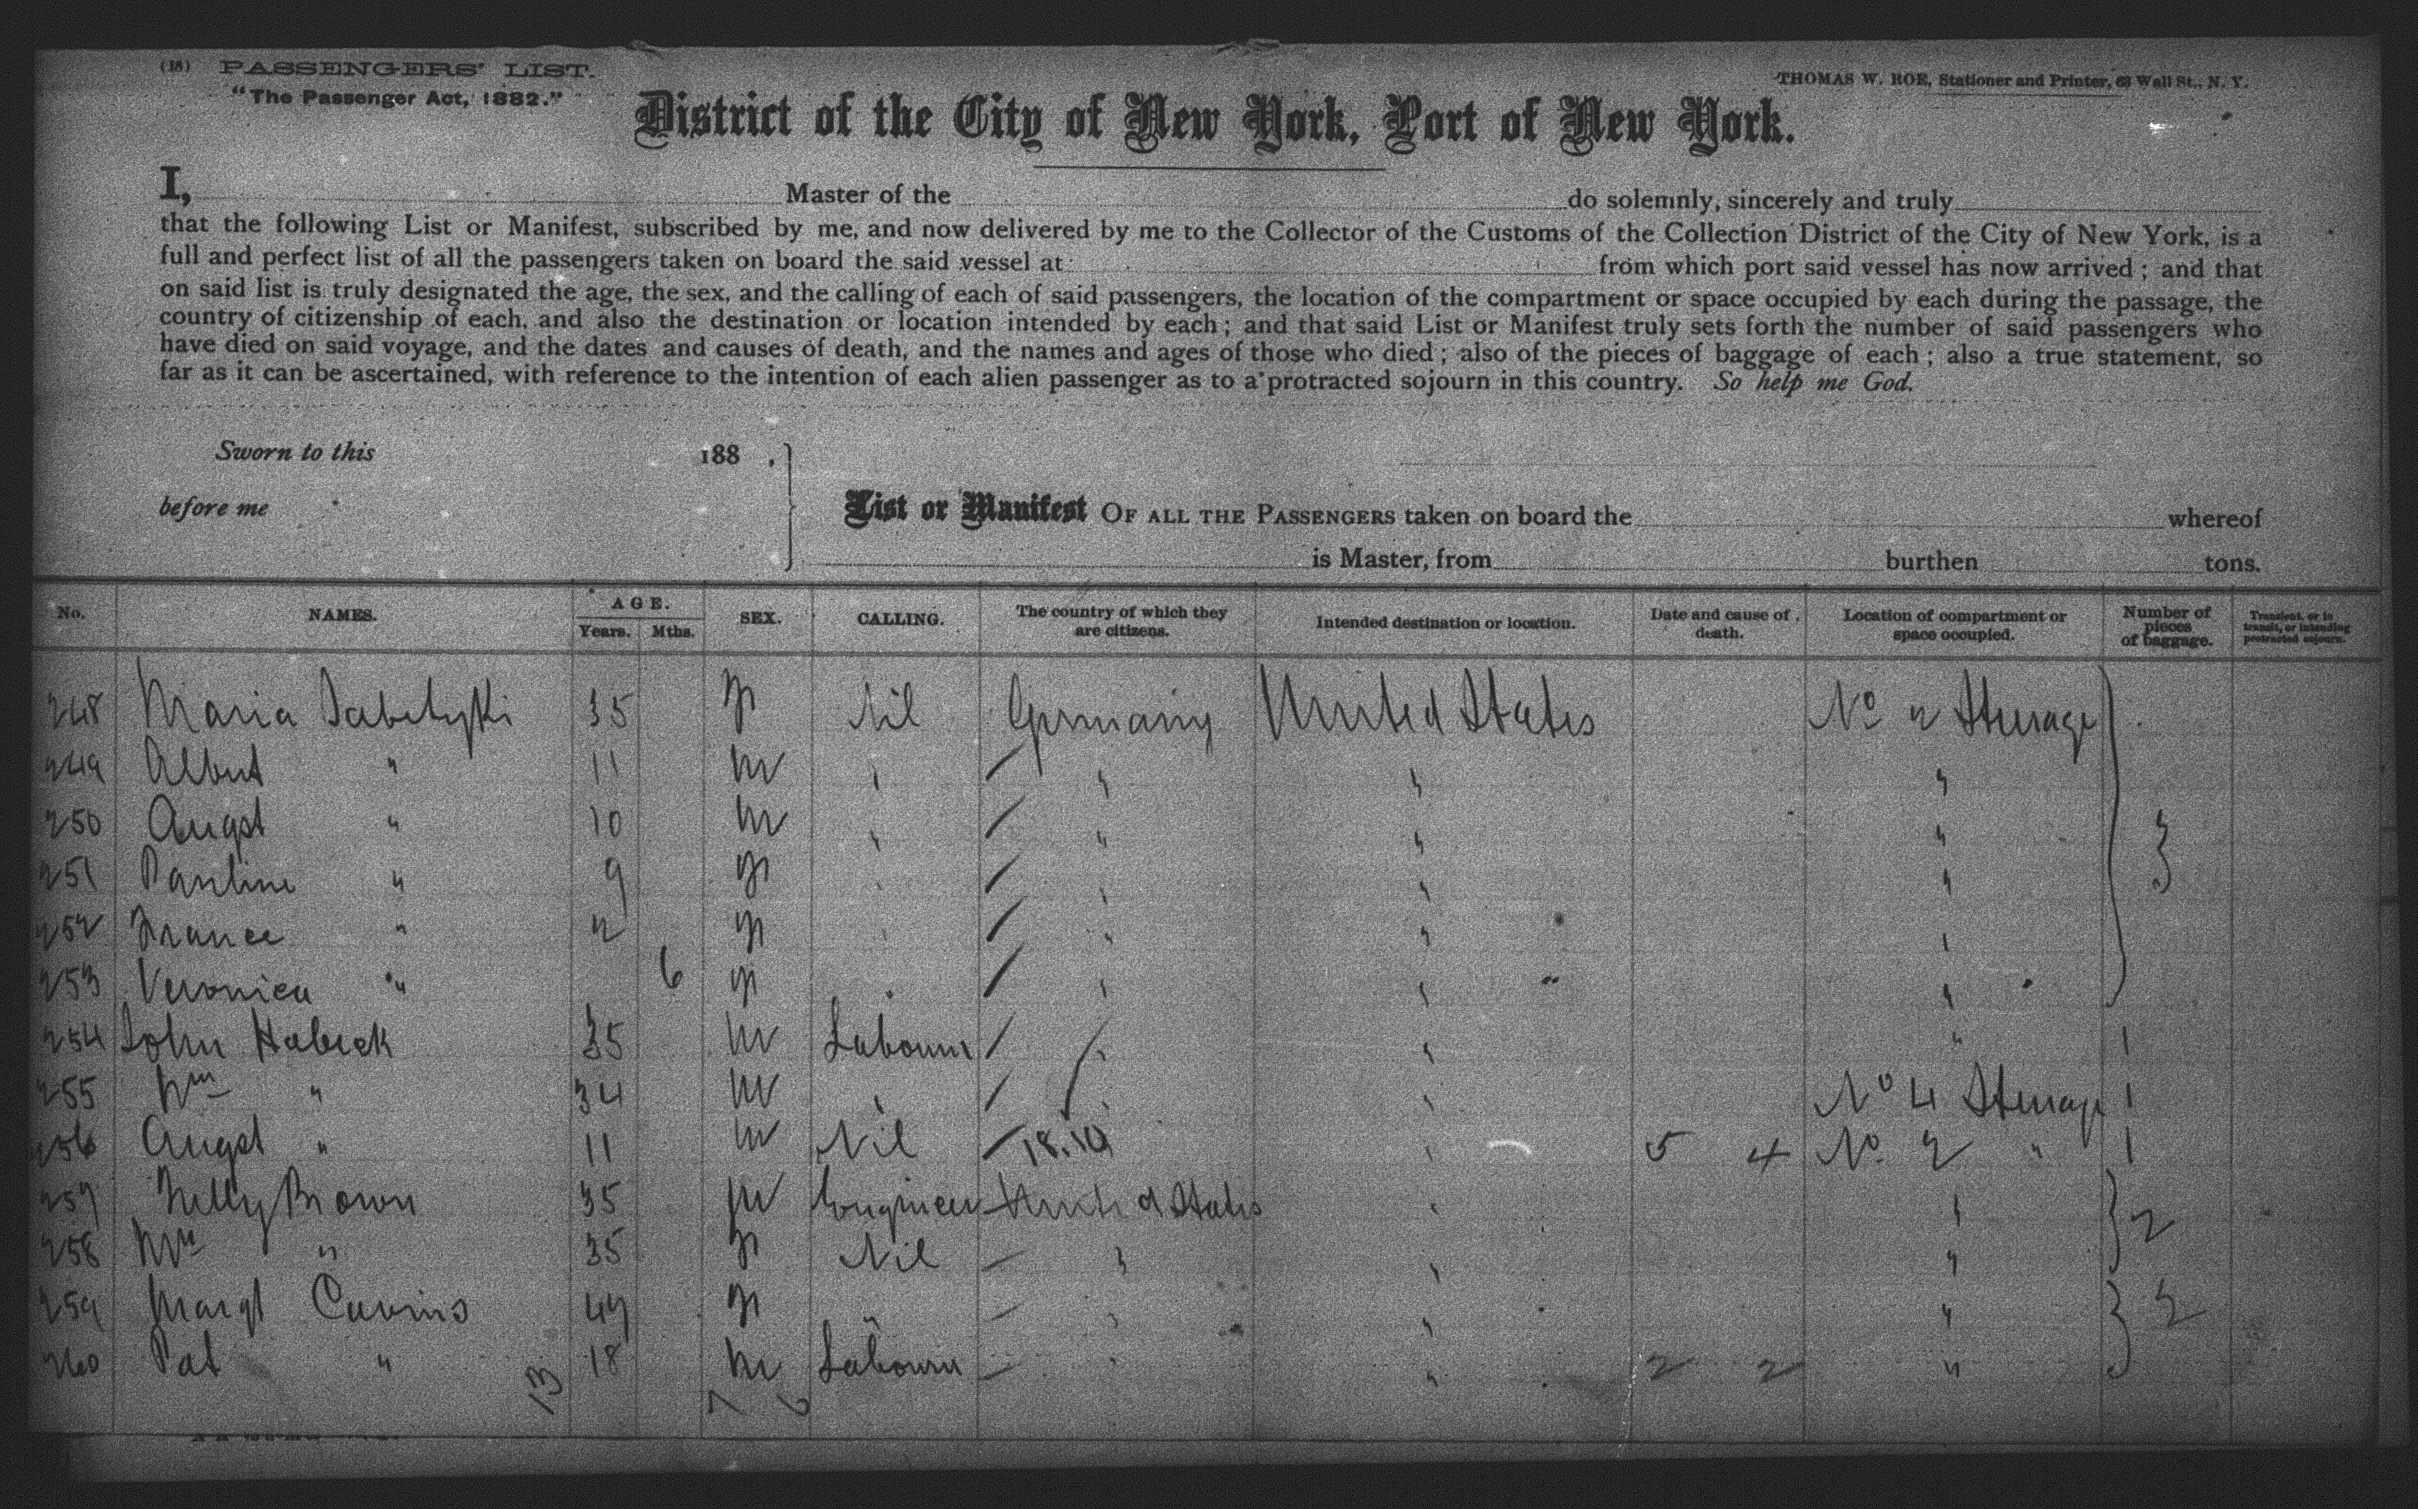 (18) PASSENGERS' LIST.
"The Passenger Act, 1882."
THOMAS W. ROE, Stationer and Printer, 63 Wall St., N. Y.
District of the City of New York, Port of New York.
I, Master of the do solemnly, sincerely and truly
that the following List or Manifest, subscribed by me, and now delivered by me to the Collector of the Customs of the Collection District of the City of New York, is a
full and perfect list of all the passengers taken on board the said vessel at from which port said vessel has now arrived; and that
on said list is truly designated the age, the sex, and the calling of each of said passengers, the location of the compartment or space occupied by each during the passage, the
country of citizenship of each, and also the destination or location intended by each; and that said List or Manifest truly sets forth the number of said passengers who
have died on said voyage, and the dates and causes of death, and the names and ages of those who died; also of the pieces of baggage of each; also a true statement, so
far as it can be ascertained, with reference to the intention of each alien passenger as to a protracted sojourn in this country. So help me God.
Sworn to this 188 ,
before me
List or Manifest OF ALL THE PASSENGERS taken on board the whereof
is Master, from burthen tons.
No. NAMES. AGE. Years. Mths. SEX. CALLING. The country of which they are citizens. Intended destination or location. Date and cause of death. Location of compartment or space occupied. Number of pieces of baggage. Transient, or in transit, or intending protracted sojourn.
248 Maria 35 F Nil Germany United States No 2 Steerage
249 Albert " 11 M " " " "
250 Augst " 10 M " " " " 3
251 Pauline " 9 F " " " "
252 France " 2 F " " " "
253 Veronica " 6 F " " " "
254 John Habeck 35 M Labourer " " " 1
255 Wm " 34 M " " " No 4 Steerage 1
256 Augst " 11 M Nil 18.10 " 5 4 No 2 " 1
257 Nelly Brown 35 M Engineer United States " "
258 " 35 F Nil " " " 2
259 Margt 47 F " " " " 2
260 Pat " 18 M Labourer " " 2 2 "
13 7 6